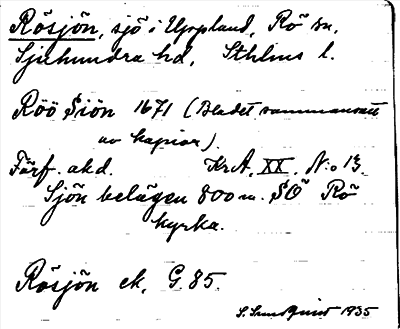 Rösjön, sjö i Uppland, Rö sn,
Sjuhundra hd, Sthlms l.
Röö Siön 1671 (Bladet sammansatt
av kopior).
Förf. okd. KrA, XX, N:o 13.
Sjön belägen 800 m. SÖ Rö
kyrka.
Rösjön ek, G. 85.
S. Sundquist 1935